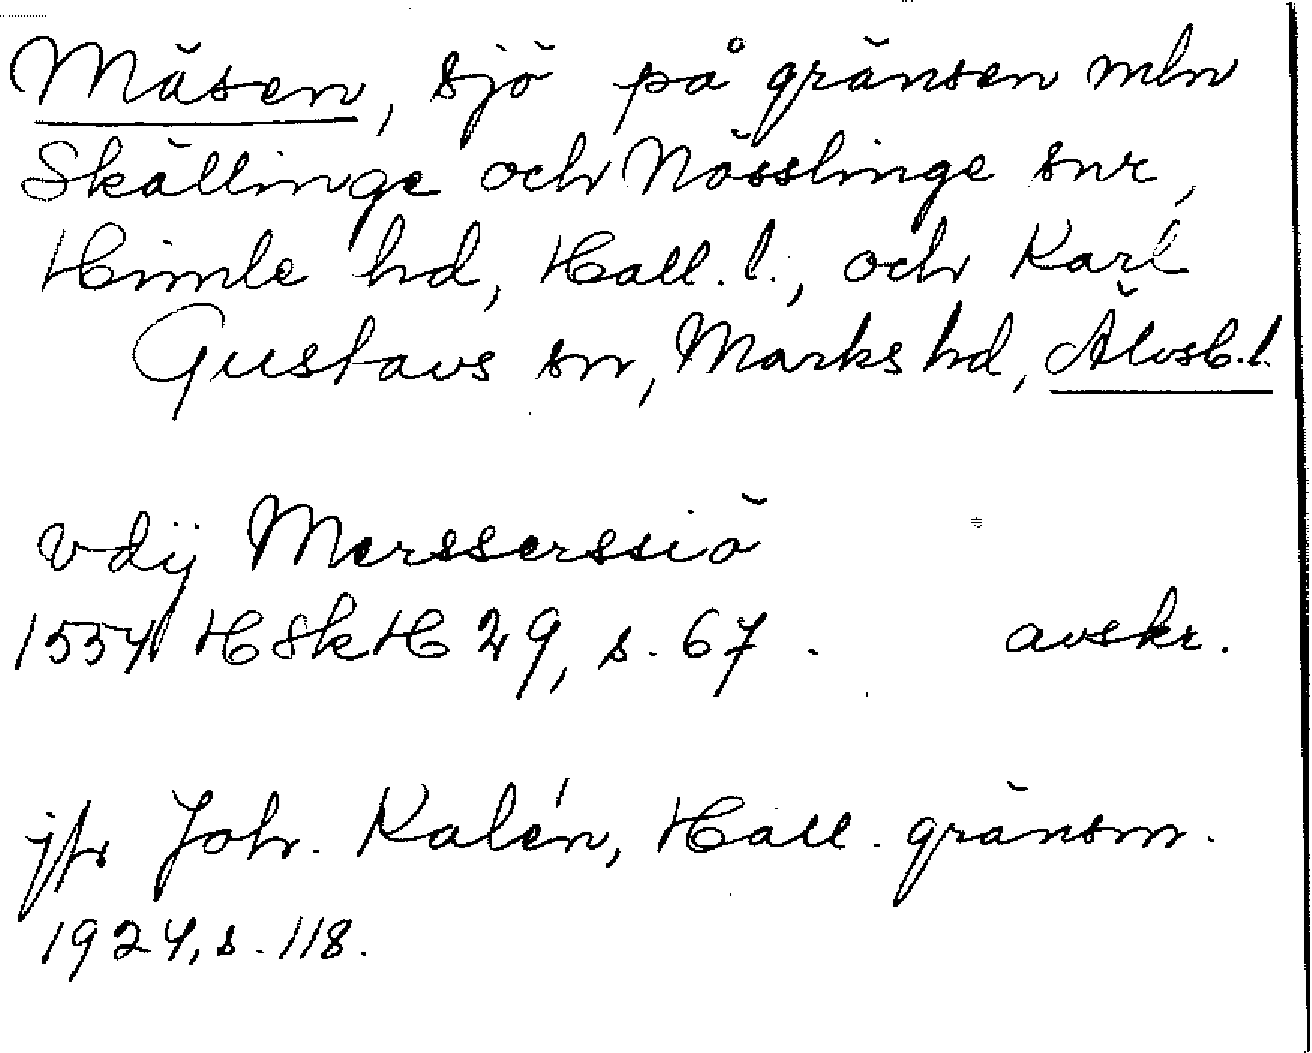 Mäsen, sjö på gränsen mln
Skällinge och Nösslinge snr,
Himle hd, Hall. l., och Karl
Gustavs sn, Marks hd, Älvsb. l.
vdij Mersserssiö
1554 HSkH 29, s. 67. avskr.
jfr Joh. Kalén, Hall. gränsm.
1924, s. 118.